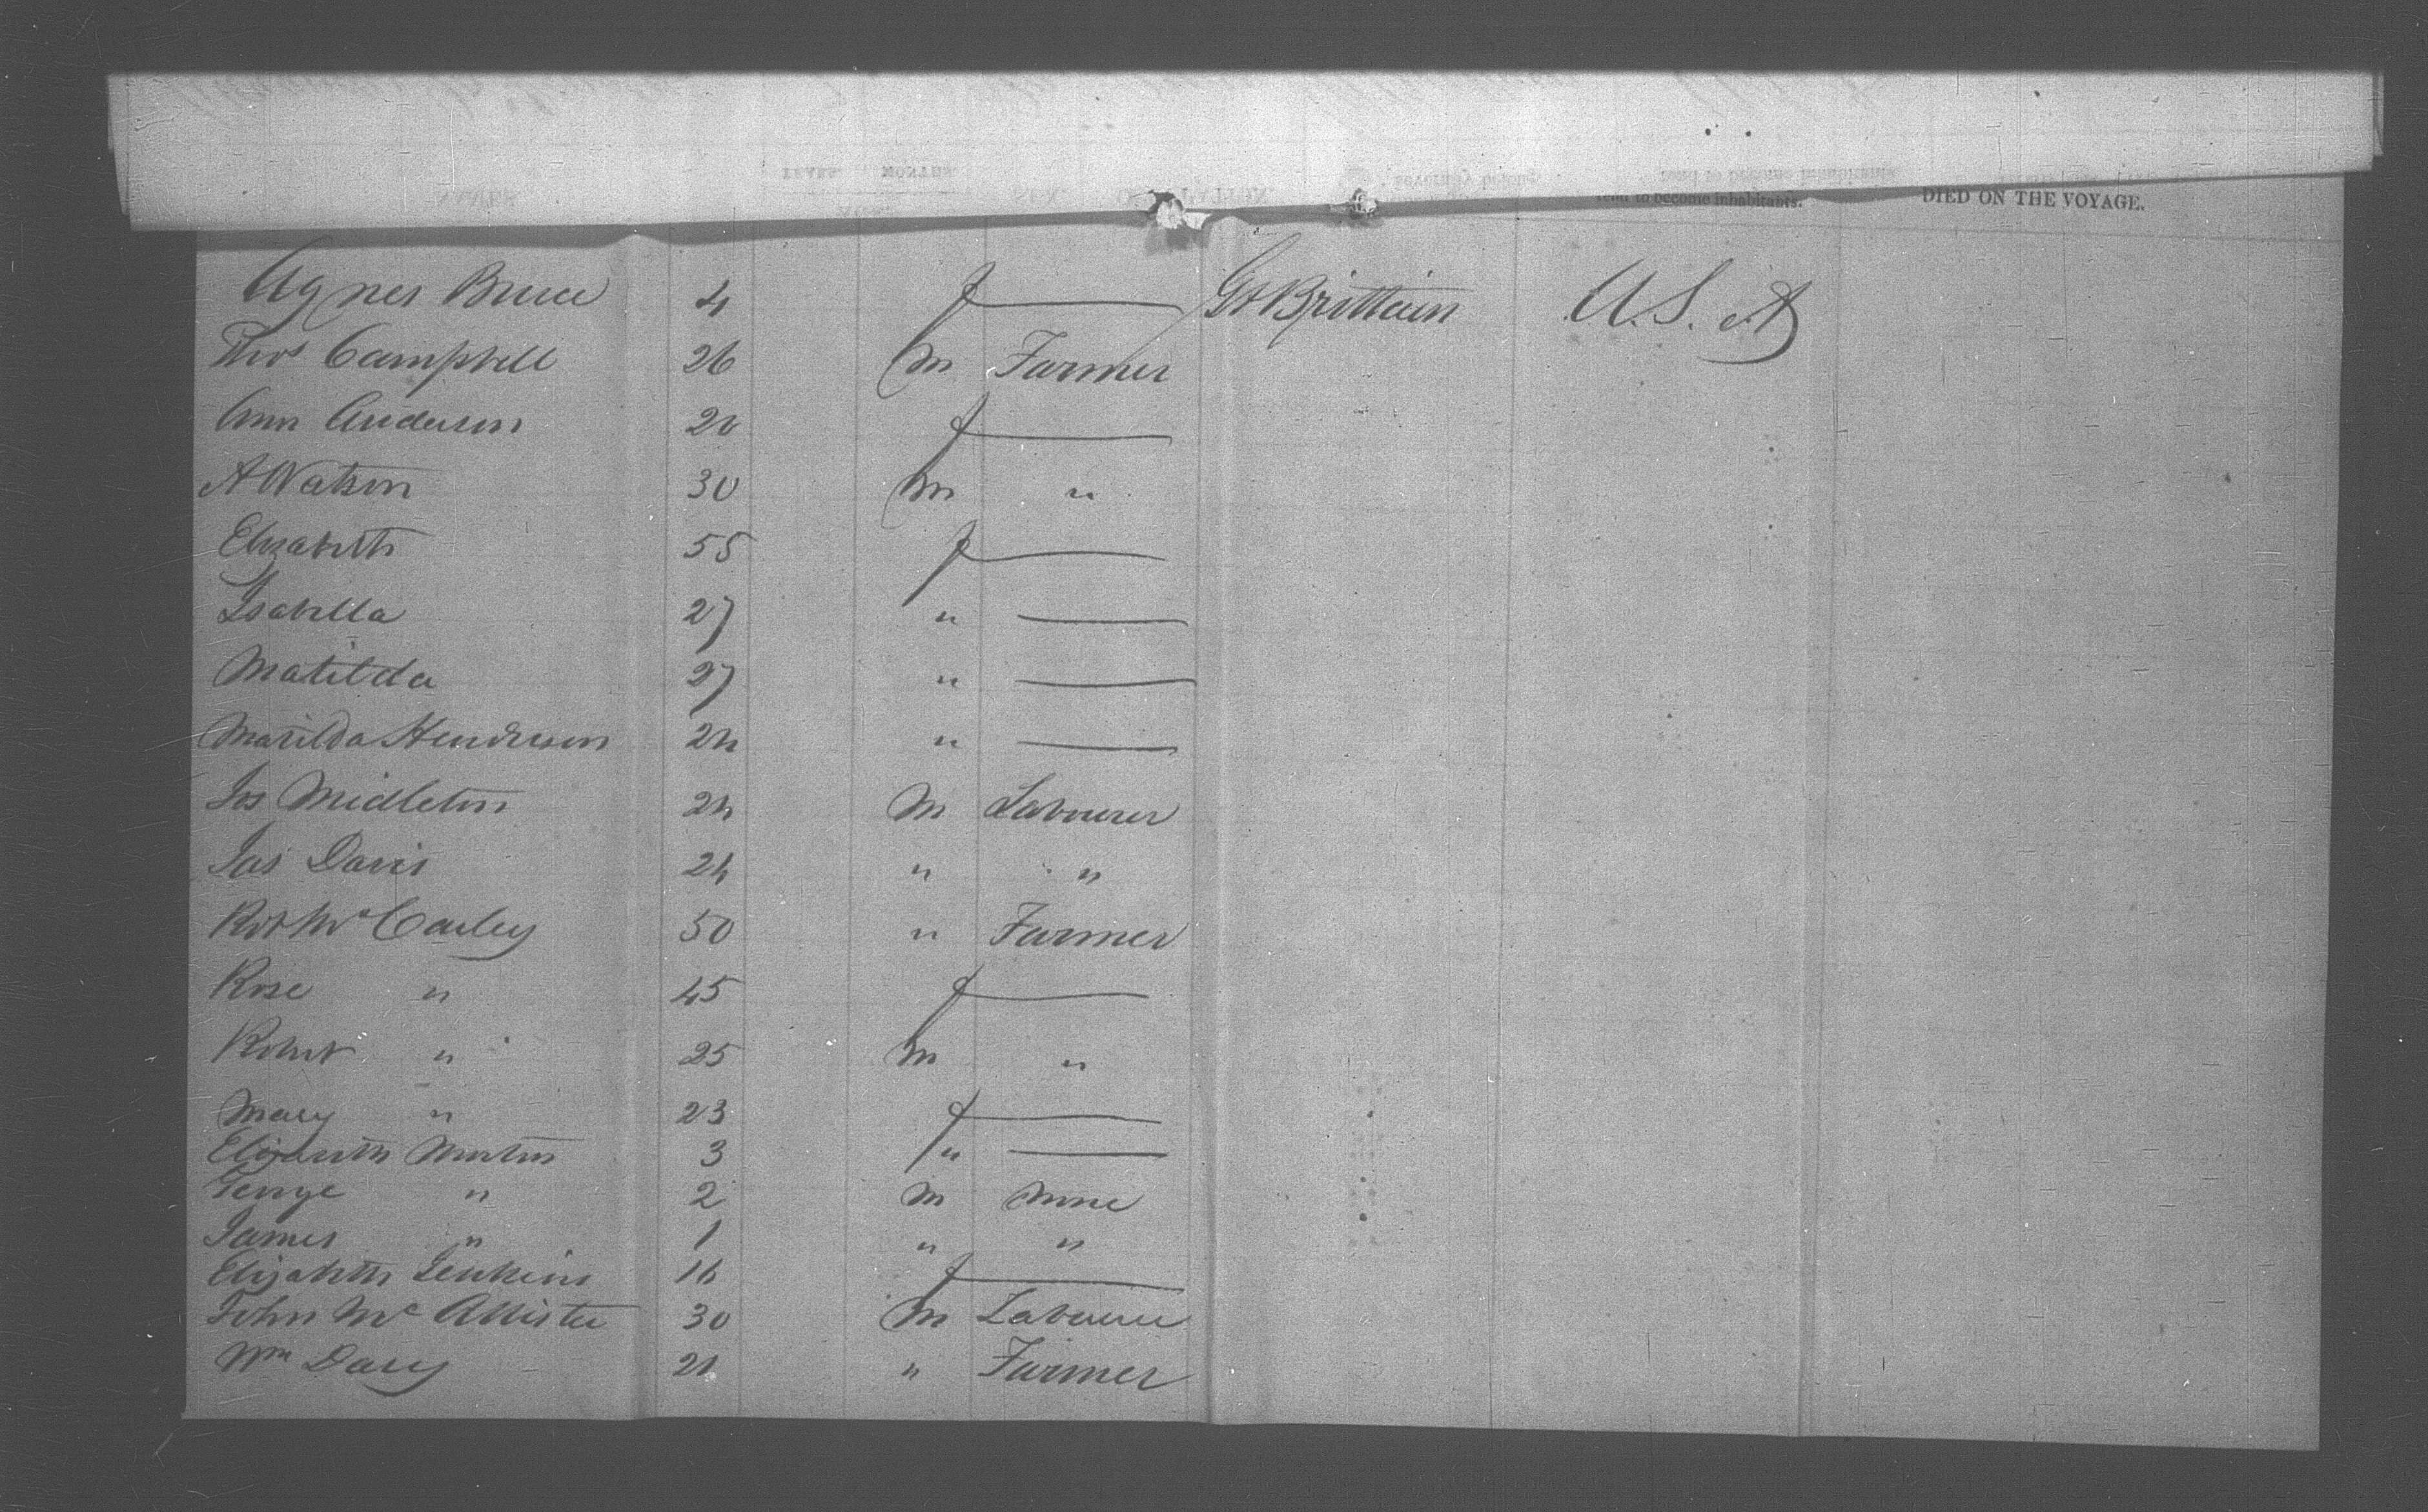 tend to become inhabitants. DIED ON THE VOYAGE.
Agnes Bruce 4 f — Gt Brittain U.S.A
Thos Campbell 26 m Farmer
Ann Anderson 20 f —
A Watson 30 m "
Elizabeth 55 f —
Isabella 27 " —
Matilda 27 " —
Matilda Henderson 24 " —
Jos Midleton 24 m Labourer
Jas Davis 24 " "
Robt McCauley 50 " Farmer
Rose " 45 f —
Robert " 25 m "
Mary " 23 f —
Elizabeth Morton 3 " —
George " 2 m None
James " 1 " "
Elizabeth Jenkins 16 f —
John Mc Allister 30 m Labourer
Wm Davy 21 " Farmer